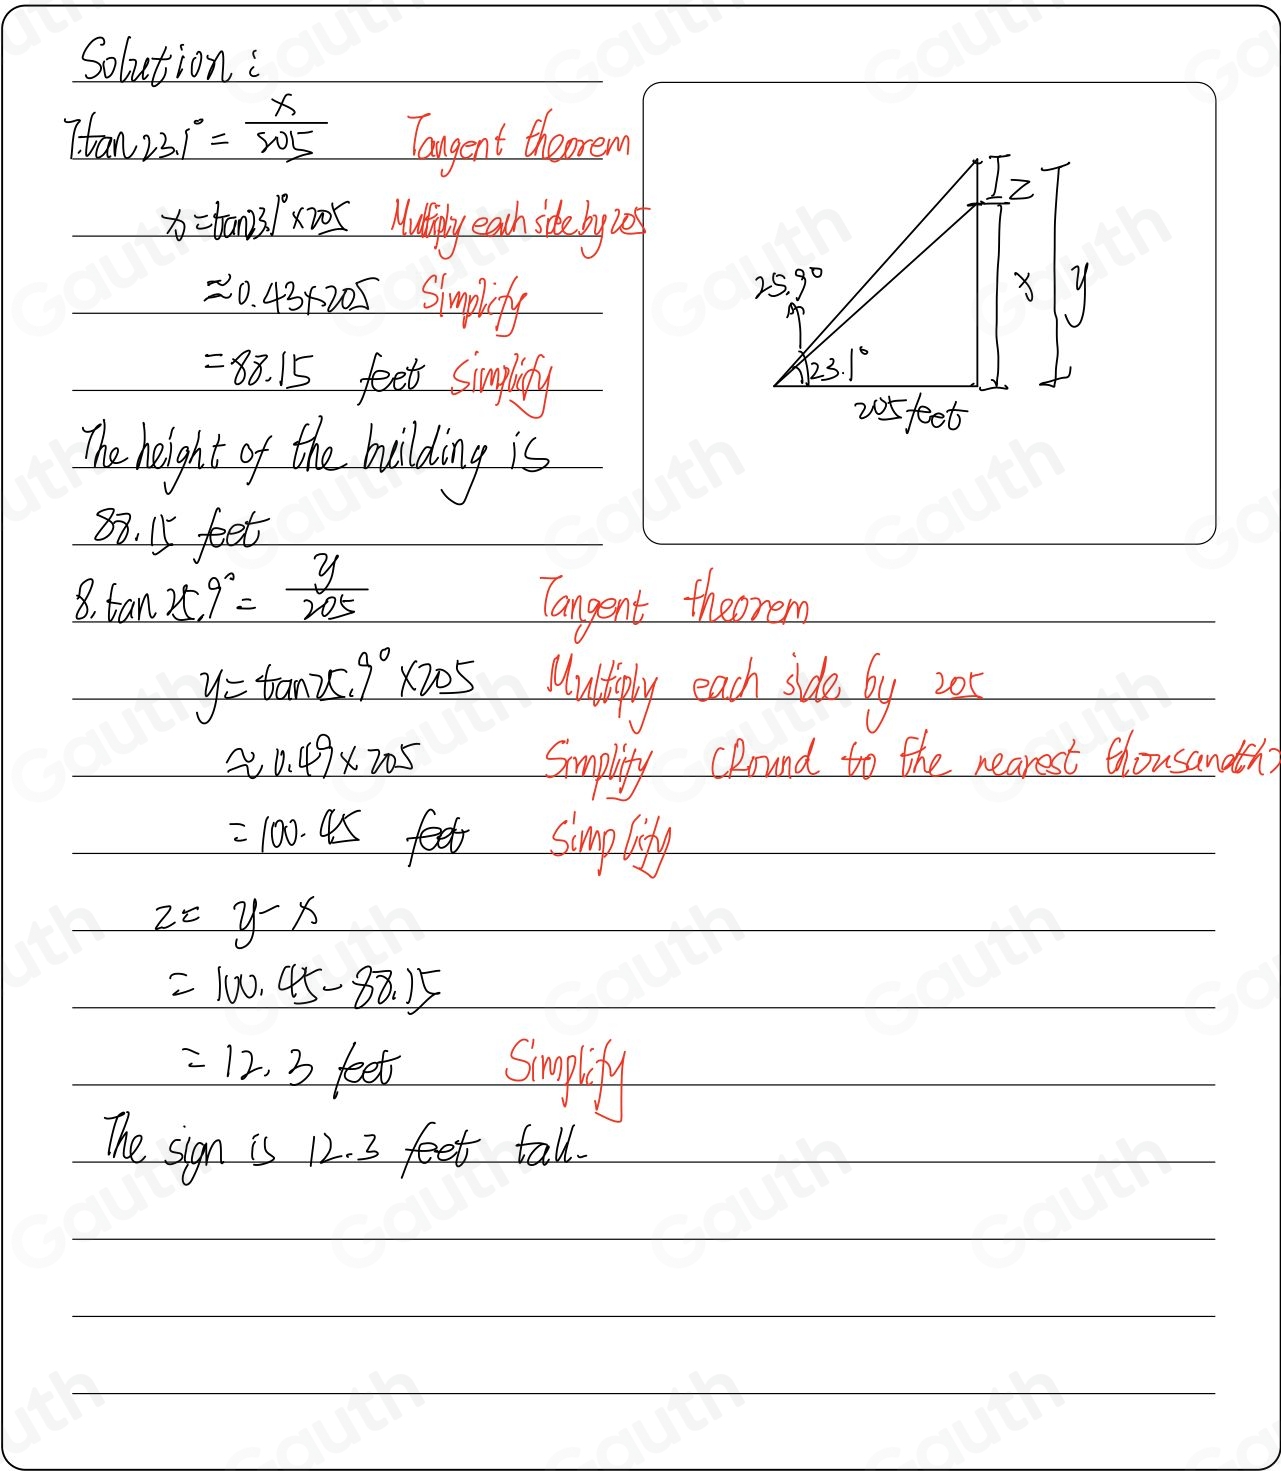 Solution:
7. tan 23.1° = x/205 Tangent theorem
x = tan 23.1° × 205 Multiply each side by 205
≈ 0.43 × 205 Simplify
= 88.15 feet Simplify
The height of the building is
88.15 feet
25.9°
23.1°
205 feet
x
y
z
8. tan 25.9° = y/205 Tangent theorem
y = tan 25.9° × 205 Multiply each side by 205
≈ 0.49 × 205 Simplify (Round to the nearest thousandth)
= 100.45 feet Simplify
z = y - x
= 100.45 - 88.15
= 12.3 feet Simplify
The sign is 12.3 feet tall.
Gauth